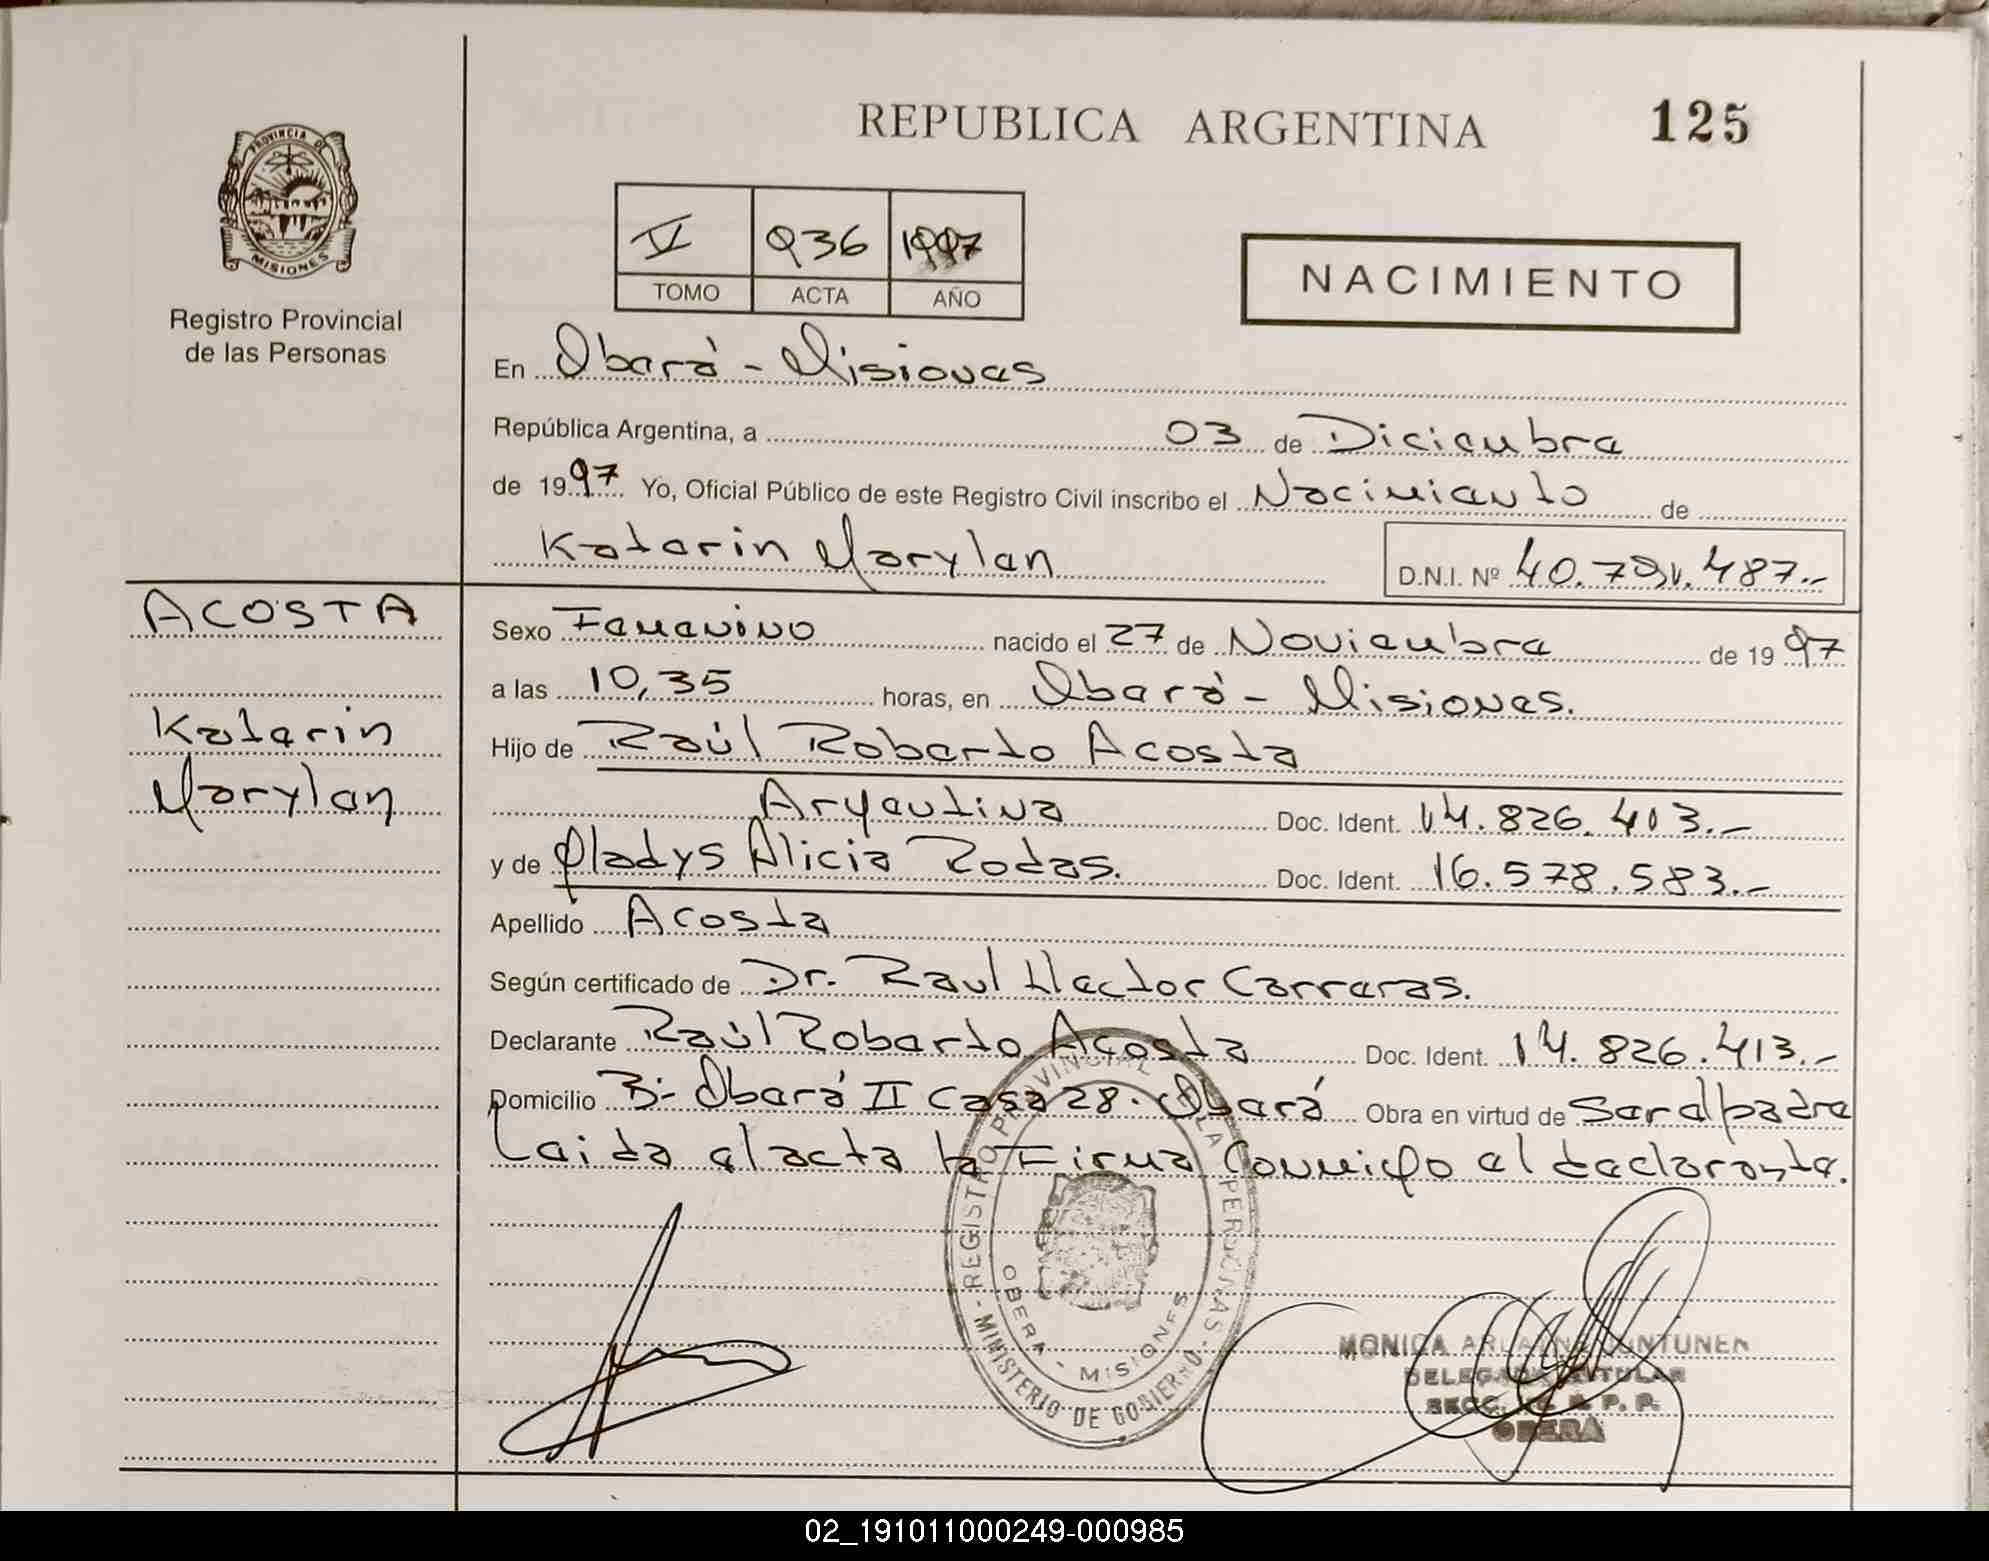 REPUBLICA ARGENTINA
125
PROVINCIA DE
MISIONES
Registro Provincial
de las Personas
V 936 1997
TOMO ACTA AÑO
NACIMIENTO
En Oberá - Misiones
República Argentina, a 03 de Diciembre
de 1997 Yo, Oficial Público de este Registro Civil inscribo el Nacimiento de
Katerin Marylen
D.N.I. Nº 40.791.487.-
ACOSTA
Katerin
Marylen
Sexo Femenino nacido el 27 de Noviembre de 1997
a las 10,35 horas, en Oberá - Misiones.
Hijo de Raúl Roberto Acosta
Argentina Doc. Ident. 14.826.413.-
y de Gladys Alicia Rodas. Doc. Ident. 16.578.583.-
Apellido Acosta
Según certificado de Dr. Raul Hector Carreras.
Declarante Raúl Roberto Acosta Doc. Ident. 14.826.413.-
Domicilio B: Oberá II Casa 28. Oberá Obra en virtud de Ser el padre
Leida el acta la Firma Conmigo el declarante.
REGISTRO PROVINCIAL DE LAS PERSONAS - MINISTERIO DE GOBIERNO -
OBERA - MISIONES
MONICA
DELEGADA TITULAR
SECC. R. P. P.
OBERA
02_191011000249-000985